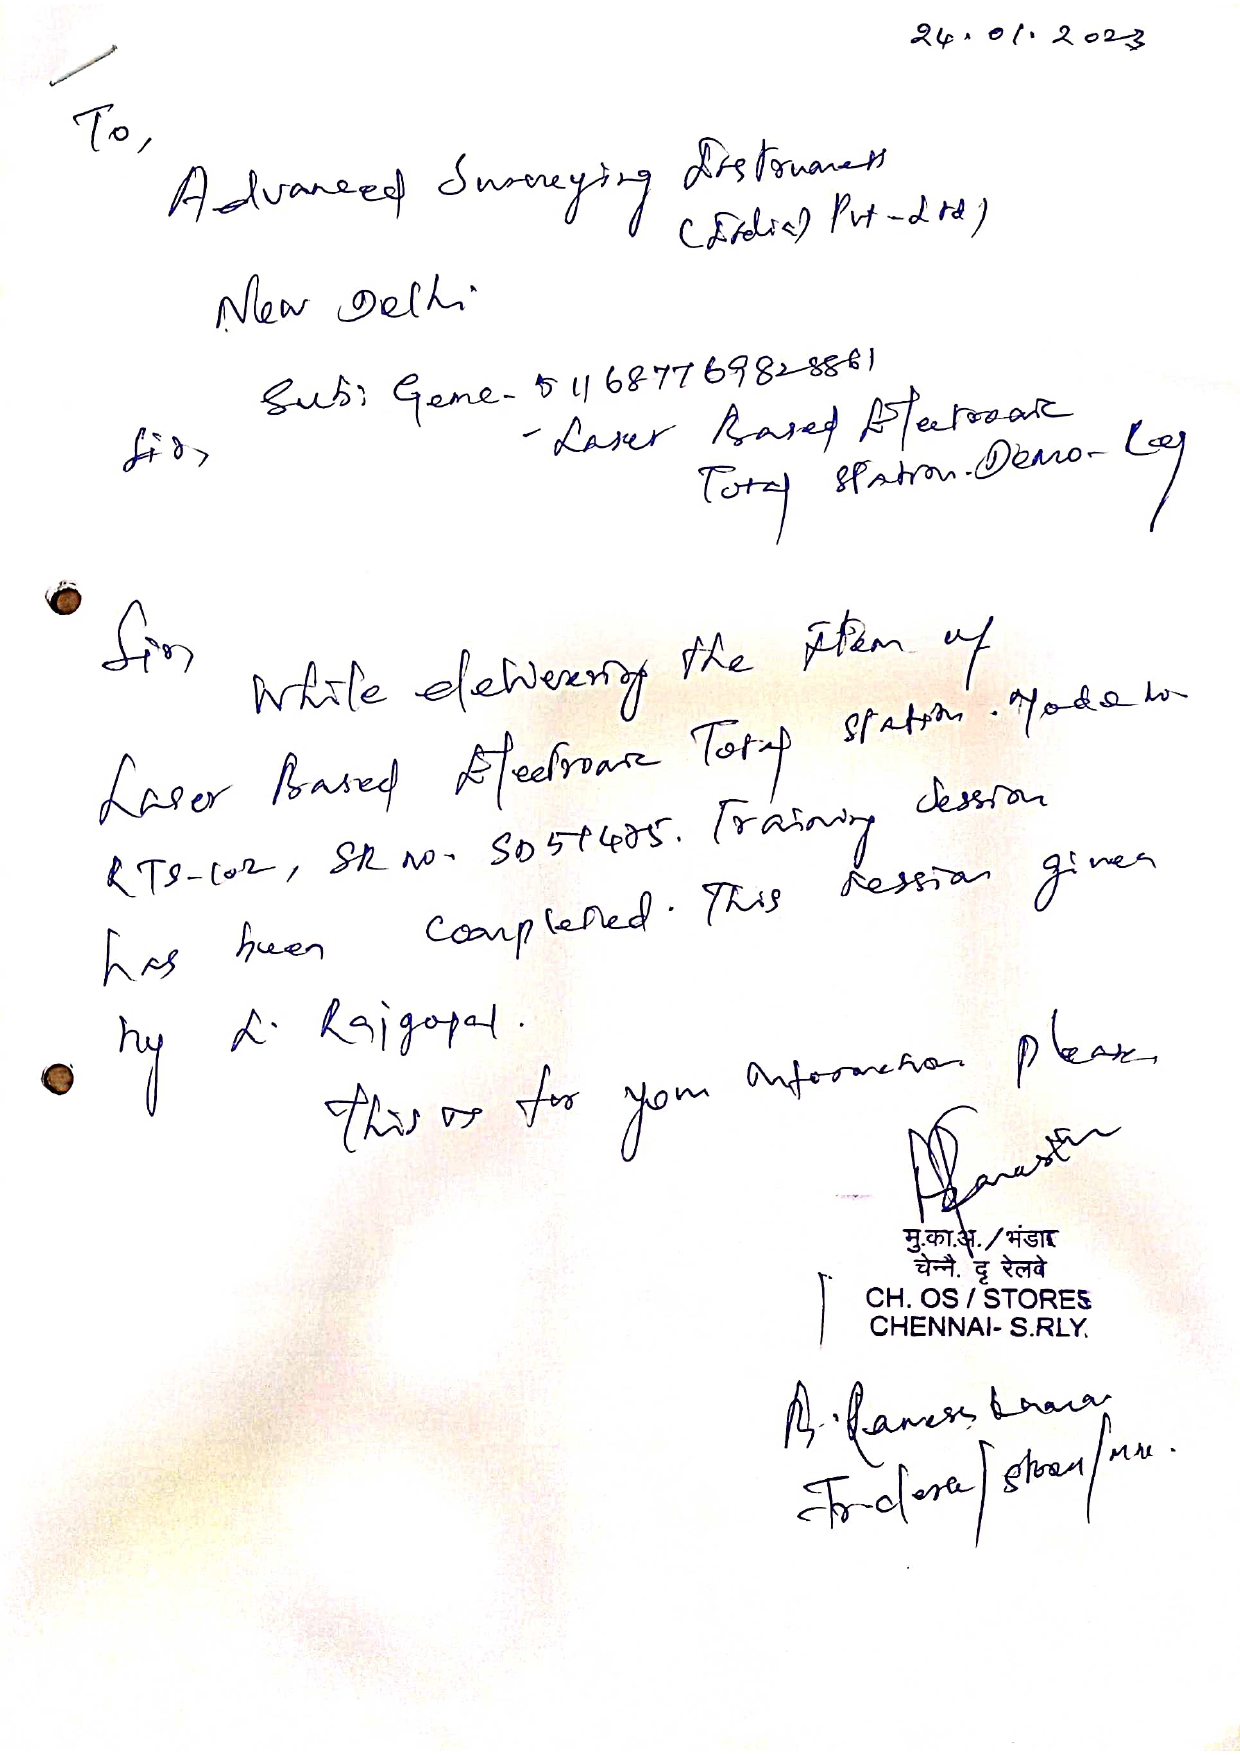 24.01.2023
To,
Advanced Surveying Instruments
(India) Pvt-Ltd)
New Delhi
Sub: Geme-511687769828861
- Laser Based Electronic
Sir,
Total Station. Demo-
Sir,
While delivering the Item of
Laser Based Electronic Total Station. Mode no
RTS-102, SR no. Training Session
has been completed. This session given
by L. Rajgopal.
This is for your information please.
मु.का.अ./भंडार
चेन्नै. दृ रेलवे
CH. OS / STORES
CHENNAI- S.RLY.